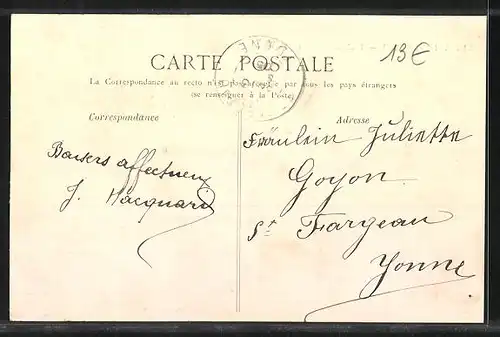 13€
CARTE POSTALE
La Correspondance au recto n'est pas acceptée par tous les pays étrangers
(se renseigner à la Poste)
Correspondance
Adresse
Baisers affectueux
J. Macquard
Fräulein Juliette
Goyon
St Fargeau
Yonne